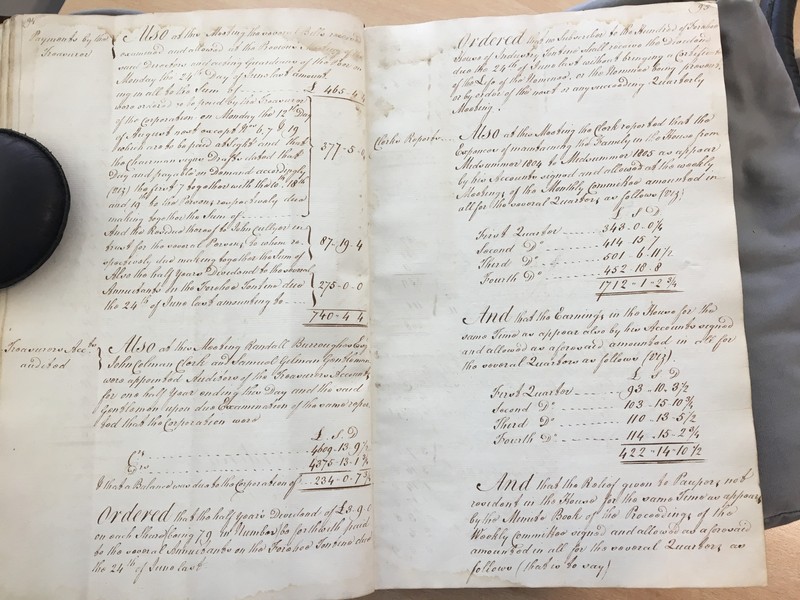 94
Payments by the
Treasurer
Also at this Meeting the several Bills
examined and allowed at the
said Directors and acting Guardians of the Poor on
Monday the 24th Day of June last amount
ing in all to the Sum of £ 465-4-
were ordered to be paid by the Treasurer
of the Corporation on Monday the 12th Day
of August next except No 6, 7 & 19
which are to be paid at sight and that
the Chairman signs Drafts dated that
Day and payable on Demand accordingly
(Viz) the first 7 together with the 10th 18th
and 19th to the Persons respectively due
making together the Sum of 377-5-
And the Residue thereof to John Cully in
trust for the several Persons to whom re
spectively due making together the Sum of 87-19-4
Also the half Years Dividend to the several
Annuitants in the Forehoe Tontine due
the 24th of June last amounting to 275-0-0
740-4-4
Treasurers Accts
audited
Also at this Meeting Randall Burroughes Esqr
John Colman Clerk and Samuel Gilman Gentlemen
were appointed Auditors of the Treasurers Accounts
for one half Year ending this Day and the said
Gentlemen upon due Examination of the same repor
ted that the Corporation were
£ S D
4609-13-9½
4375-13-1¾
& that a Balance was due to the Corporation of 234-0-7¾
Ordered that the half Years Dividend of £3-9-0
on each Share being 79 in Number be forthwith paid
to the several Annuitants on the Forehoe Tontine due
the 24th of June last
95
Ordered that no Subscriber to the Hundred of Forehoe
House of Industry Tontine shall receive the Dividend
due the 24th of June last without bringing a Certificate
of the Life of the Nominee, or the Nominee being produced,
or by order of the next or any succeeding Quarterly
Meeting.
Clerks Reports
Also at this Meeting the Clerk reported that the
Expences of maintaining the Family in the House from
Midsummer 1804 to Midsummer 1805 as appear
by his Accounts signed and allowed at the weekly
Meetings of the Monthly Committee amounted in
all for the several Quarters as follows (Viz)
£ S D
First Quarter 343-0-0¼
Second Do 414-15-7
Third Do 501-6-11½
Fourth Do 452-18-8
1712-1-2¾
And that the Earnings in the House for the
same Time as appear also by his Accounts signed
and allowed as aforesaid amounted in all for
the several Quarters as follows (Viz).
£ S D
First Quarter 93-10-3½
Second Do 103-15-10¾
Third Do 110-13-5½
Fourth Do 114-15-2¾
422-14-10½
And that the Relief given to Paupers not
resident in the House for the same Time as appears
by the Minute Book of the Proceedings of the
Weekly Committee signed and allowed as aforesaid
amounted in all for the several Quarters as
follows (that is to say)